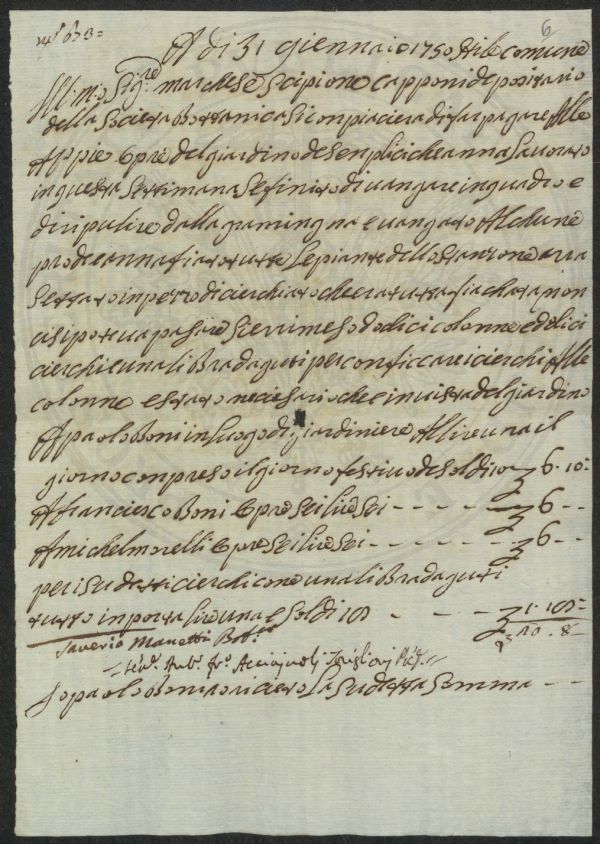 N° 673=
6
A di 31 giennaio 1750 stile comune
Ill.mo Sig.re marchese scipione capponi depositario
della Società Bottanica si conpiacierà di far pagare alle
Appie opre del giardino de senplici che anna lavorato
in questa settimana se finito di vangare in quadro e
di ripulire dalla gramingna e vangato alchune
prode e anna fiatato tutte le piante dello stanzone
Settato in pezzo di cierchiato che era tutta fiachata non
ci si poteva pasare si e rimeso dodici colonne e dodici
cierchi e una libra daguti per conficcare i cierchi alle
colonne e stato neciesario che e in vista del giardino
A paolo Boni in luogo di giardiniere a lire una il
giorno conpreso il giorno festivo de soldi 10 6·10=
A franciesco Boni 6 opre Sei lire Sei - - - - 6 - -
A michel morelli 6 opre Sei lire Sei - - - - 6 - -
per i sudetti cierchi con e una libra daguti
tutto inporta lire una e soldi 18 - - - 1·18=
Saverio Manetti 20·8-
Io paolo Boni o riceuto la sudetta Somma - -